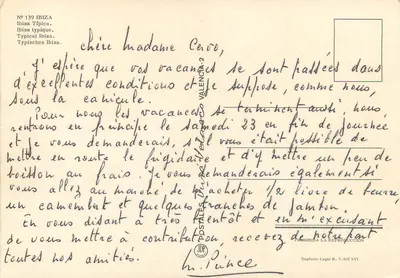 Nº 139 IBIZA
Ibiza Típica.
Ibiza typique.
Typical Ibiza.
Typisches Ibiza.
Chère Madame
J'espère que vos vacances se sont passées dans
d'excellentes conditions et je suppose, comme nous,
sous la canicule.
Pour nous les vacances se terminent aussi, nous
rentrons en principe le samedi 23 en fin de journée
et je vous demanderais, s'il vous était possible de
mettre en route le frigidaire et d'y mettre un peu de
boisson au frais. Je vous demanderais également si
vous allez au marché de m'acheter 1/2 livre de beurre,
un camembert et quelques tranches de jambon.
En vous disant à très bientôt et en m'excusant
de vous mettre à contribution, recevez de notre part
toutes nos amitiés.
M. Prince
POSTALES
VALENCIA-2
Depósito Legal B.